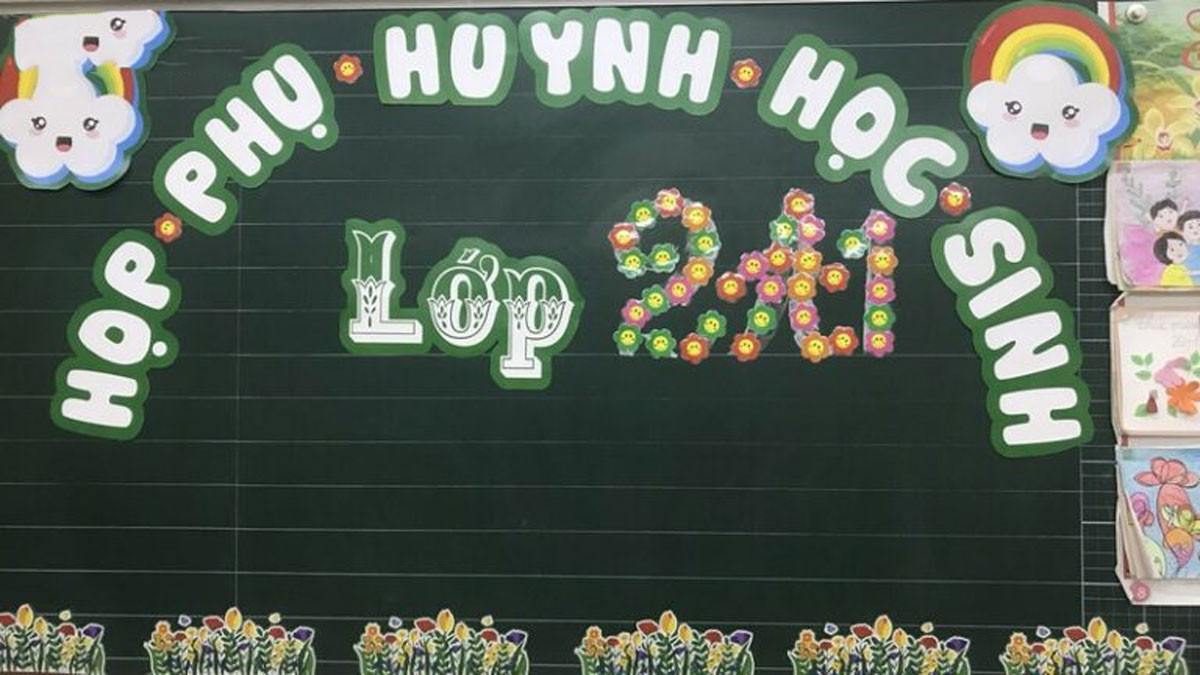 HỌP PHỤ HUYNH HỌC SINH
Lớp 2A1